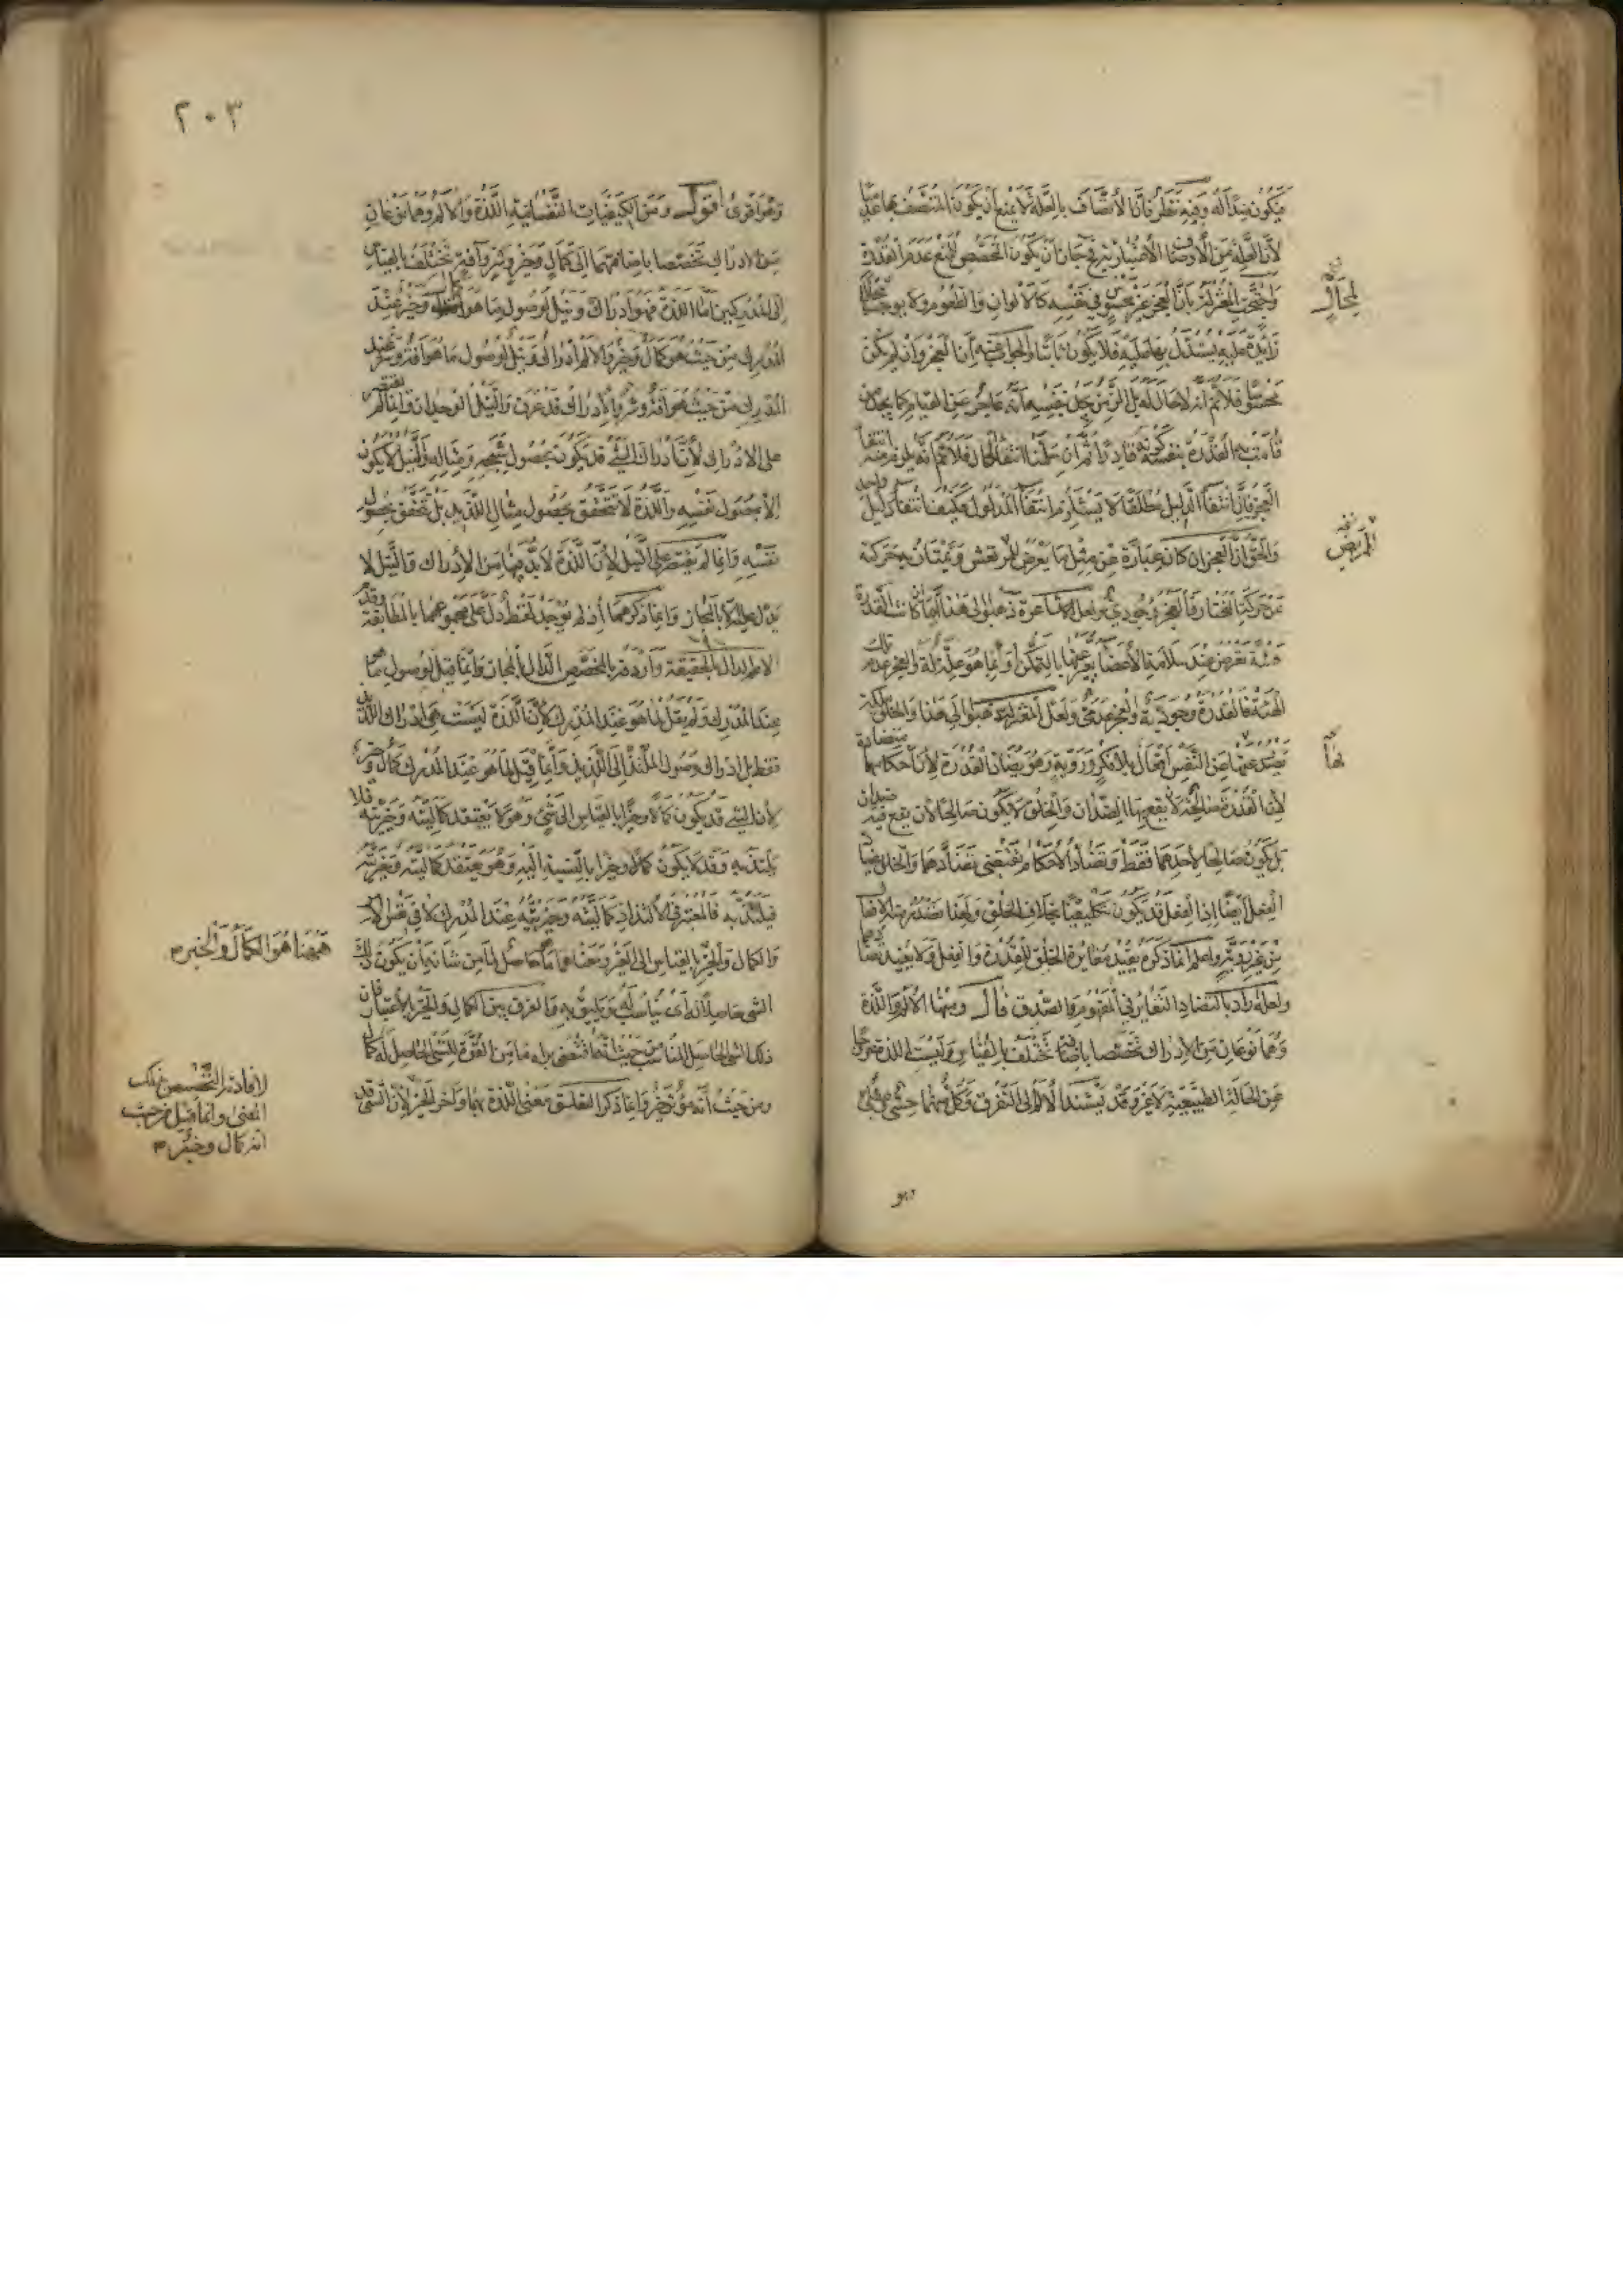 فيكون مبدأ له وفيه نظر فان الاتصاف بالعلة لا يمنع ان يكون المتصف بها عدميا
لان العلة من الاوصاف الاعتبارية جاز ان يكون المخصص للمنع عدم القدرة
واحتجت المعتزلة بان العجز غير محسوس في نفسه كالالوان والطعوم ولا يوجب حالا
لمحال
زائدة عليه يستدل بها عليه فلا يكون ثابتا والجواب عنه ان العجز وان لم يكن
محسوسا فلا نم انه لا حال له بل الزمن يجد من نفسه انه عاجز عن القيام كما يجد من
قامت به القدرة بنفسه كونه قادرا ثم ان سلمنا انتفاء الحال فلا نم انه يلزم منه انتفاء
العجز فان انتفاء الدليل مطلقا لا يستلزم انتفاء المدلول فكيف انتفاء دليل واحد
والحق ان العجز ان كان عبارة عن مثل ما يعرض للمرتعش ويمتاز به حركته
عن حركة المختار فالعجز وجودي ولعل الاشاعرة ذهبوا الى هذا اما ان كانت القدرة
هيئة تعرض عند سلامة الاعضاء يعبر عنها بالتمكن او بما هو علة له والعجز عدم تلك
الهيئة فالقدرة وجودية والعجز عدمي ولعل المعتزلة ذهبوا الى هذا والخلق ملكة
يصدر عنها من النفس افعال بلا فكر وروية وهو يضاد القدرة لان احكامهما متضادة
لها
لان القدرة صالحة لان يقع بها الضدان والخلق لا يكون صالحا لان يقع فيه ضدان
بل يكون صالحا لاحدهما فقط وتضاد الاحكام يقتضي تضادهما والخلق يضاد
الفعل ايضا اذ الفعل قد يكون تكليفيا بخلاف الخلق ولهذا تصدر منه الافعال
من غير روية واعلم ان ما ذكره يفيد مغايرة الخلق للقدرة والفعل ولا يفيد تضادهما
ولعله اراد بالتضاد التغاير في المفهوم والصدق قال ومنها الالم واللذة
وهما نوعان من الادراك تخصصا باضافة تختلف بالقياس وليست اللذة خروجا
عن الحالة الطبيعية لا غير وقد يستند الالم الى التفرق وكل منهما حسي وعقلي
وهو
٢٠٣
وهو اقوى اقول ومن الكيفيات النفسانية اللذة والالم وهما نوعان
من الادراك تخصصا باضافتهما الى كمال وخير وشر وآفة تختلف بالقياس
الى المدركين اما اللذة فهو ادراك ونيل لوصول ما هو كمال وخير عند
المدرك من حيث هو كمال وخير والالم ادراك ونيل لوصول ما هو آفة وشر عند
المدرك من حيث هو آفة وشر والادراك قد عرف والنيل الوجدان وانما لم يقتصر
على الادراك لان ادراك الشئ قد يكون بحصول شبحه ومثاله والنيل لا يكون
الا بحصول نفسه واللذة لا تتحقق بحصول مثال اللذيذ بل تتحقق بحصول
نفسه وانما لم يقتصر على النيل لان اللذة لا بد فيها من الادراك والنيل لا
يدل عليه الا بالمجاز وانما ذكرهما اذ لم يوجد لفظ دل على مجموعهما بالمطابقة وقدم
الاعم الدال بالحقيقة واردفه بالمخصص الدال بالمجاز وانما قيل لوصول ما
عند المدرك ولم يقل لما هو عند المدرك لان اللذة ليست هي ادراك اللذيذ
فقط بل ادراك وصول الملتذ الى اللذيذ وانما قيل لما هو عند المدرك كمال وخير
لان الشئ قد يكون كمالا وخيرا بالقياس الى شئ وهو لا يعتقد كماليته وخيريته فلا
يلتذ به وقد لا يكون كمالا وخيرا بالنسبة اليه وهو يعتقد كماليته وخيريته
فيلتذ به فالمعتبر في الالتذاذ كماليته وخيريته عند المدرك لا في نفس الامر
والكمال والخير ههنا هو الكمال والخير بالقياس الى الغير ومعناهما ما حاصل لما من شانه ان يكون ذلك
الشئ حاصلا له اي يناسب له ويليق به والفرق بين الكمال والخير بالاعتبار فان
ذلك الشئ الحاصل المناسب من حيث انه اقتضى براءة ما من القوة للشئ الحاصل له كمال
ومن حيث انه مؤثر خير وانما ذكر لتعلق معنى اللذة بهما واخر الخير لان الشئ قد
لافادته التخصيص لذلك
المعنى وانما قيل من حيث
انه كمال وخير